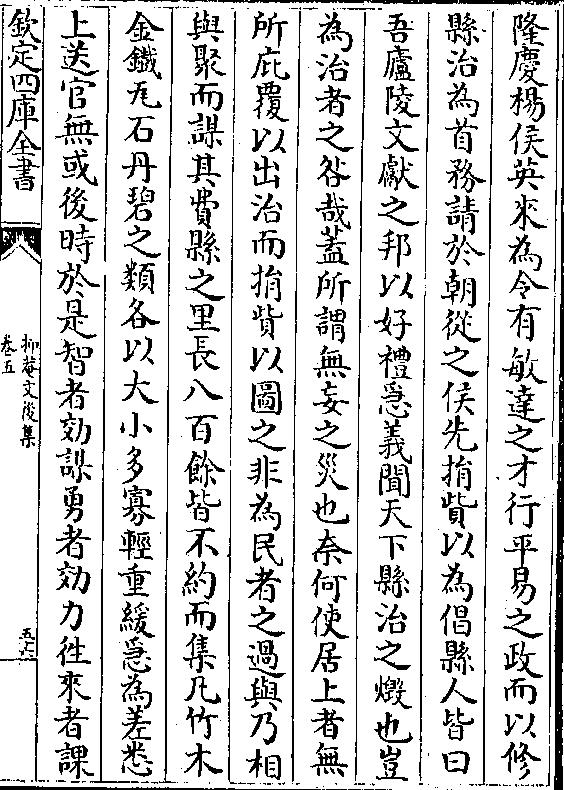 隆慶楊侯英來為令有敏達之才行平易之政而以修
縣治為首務請於朝從之侯先捐貲以為倡縣人皆曰
吾廬陵文獻之邦以好禮急義聞天下縣治之燬也豈
為治者之咎哉蓋所謂無妄之災也奈何使居上者無
所庇覆以出治而捐貲以圖之非為民者之過與乃相
與聚而謀其費縣之里長八百餘皆不約而集凡竹木
金鐵瓦石丹碧之類各以大小多寡輕重緩急為差悉
上送官無或後時於是智者効謀勇者効力徃來者課
欽定四庫全書
抑菴文後集
卷五